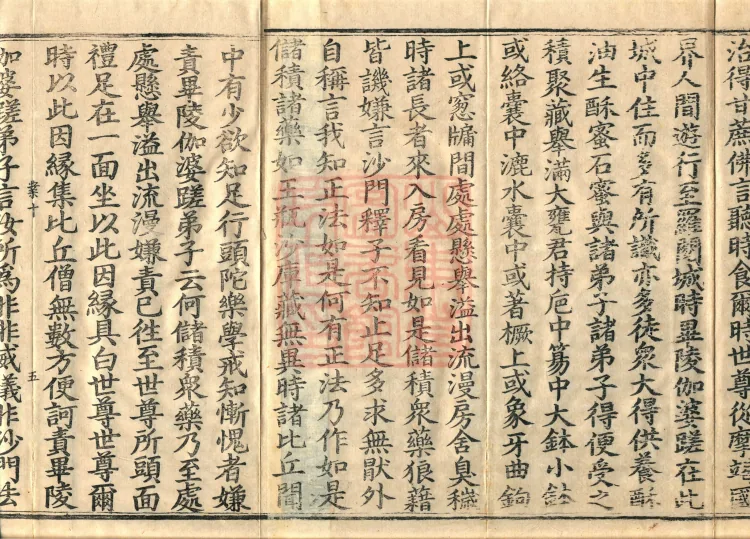 治得甘蔗佛言聽時食爾時世尊從摩竭國
界人間遊行至羅閱城時畢陵伽婆蹉在此
城中住而多有所識亦多徒衆大得供養酥
油生酥蜜石蜜與諸弟子諸弟子得便受之
積聚藏舉滿大甕君持巵中篅中大鉢小鉢
或絡囊中漉水囊中或著橛上或象牙曲鉤
上或窓牖間處處懸舉溢出流漫房舍臭穢
時諸長者來入房看見如是儲積衆藥狼藉
皆譏嫌言沙門釋子不知止足多求無猒外
自稱言我知正法如是何有正法乃作如是
儲積諸藥如王瓶沙庫藏無異時諸比丘聞
中有少欲知足行頭陀樂學戒知慚愧者嫌
責畢陵伽婆蹉弟子云何儲積衆藥乃至處
處懸舉溢出流漫嫌責已往至世尊所頭面
禮足在一面坐以此因縁具白世尊世尊爾
時以此因縁集比丘僧無數方便訶責畢陵
業十 五
伽婆蹉弟子言汝所爲非非威儀非沙門法